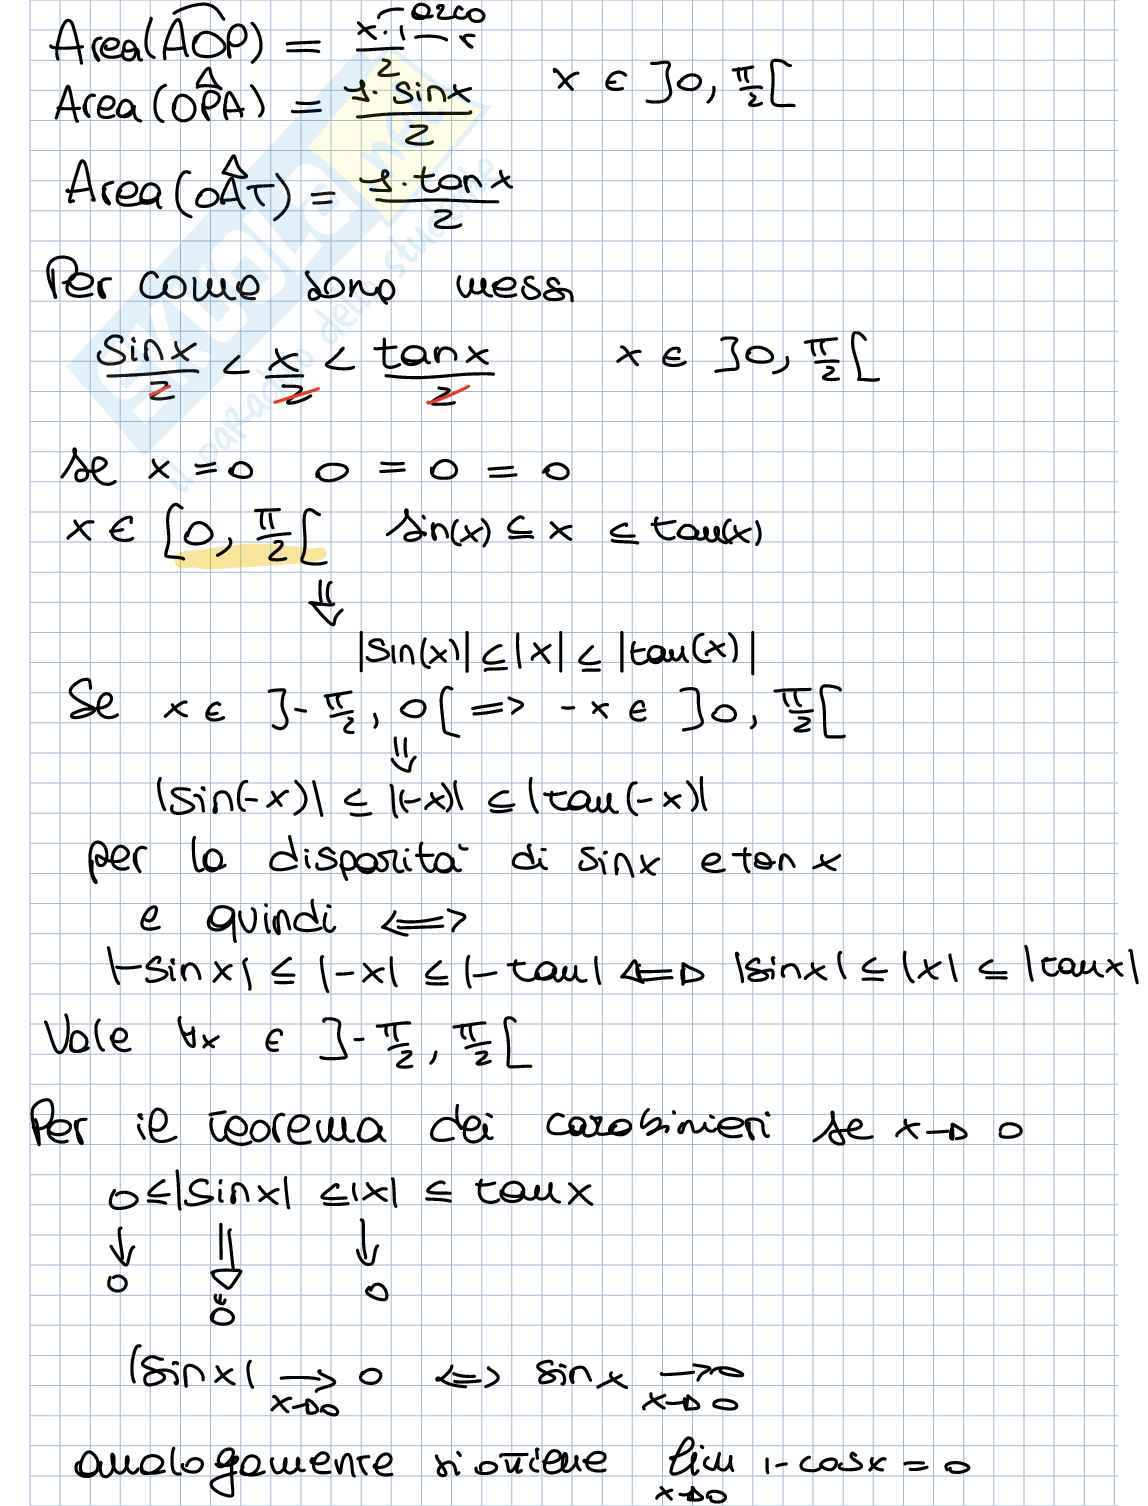 Area(AOP) = x·1/2 arco r
Area(OPA) = 1·sinx/2 x ∈ ]0, π/2[
Area(OAT) = 1·tanx/2
Per come sono messi
sinx/2 < x/2 < tanx/2 x ∈ ]0, π/2[
se x = 0 0 = 0 = 0
x ∈ [0, π/2[ sin(x) ≤ x ≤ tan(x)
⇓
|sin(x)| ≤ |x| ≤ |tan(x)|
Se x ∈ ]-π/2, 0[ => -x ∈ ]0, π/2[
⇓
|sin(-x)| ≤ |(-x)| ≤ |tan(-x)|
per la disparità di sinx e tanx
e quindi <=>
|-sinx| ≤ |-x| ≤ |-tan| <=> |sinx| ≤ |x| ≤ |tanx|
Vale ∀x ∈ ]-π/2, π/2[
Per il teorema dei carabinieri se x→0
0 ≤ |sinx| ≤ |x| ≤ tanx
↓ ⇓ ↓
0 0 0
|sinx| → 0 <=> sinx → 0
x→0 x→0
analogamente si ottiene lim 1-cosx = 0
x→0
SKUOLA.net
il paradiso dello studente